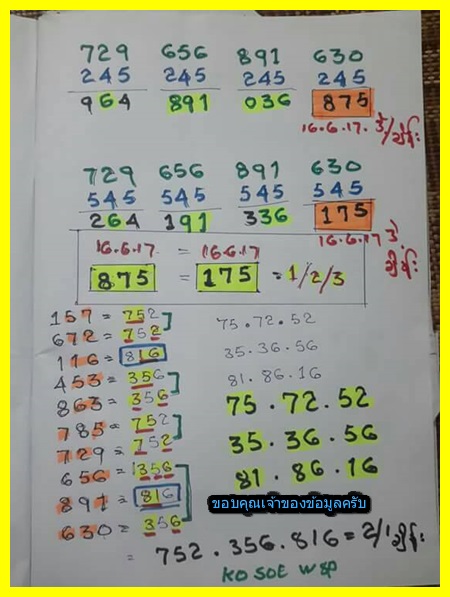 729 656 891 630
245 245 245 245
964 891 036 875
16.6.17.
729 656 891 630
545 545 545 545
264 191 336 175
16.6.17
16.6.17 = 16.6.17
875 = 175 = 1/2/3
157 = 752
672 = 752
116 = 816
453 = 356
863 = 356
785 = 752
729 = 752
656 = 356
891 = 816
630 = 356
75.72.52
35.36.56
81.86.16
75.72.52
35.36.56
81.86.16
ขอบคุณเจ้าของข้อมูลครับ
= 752.356.816 = 2/1
KO SOE